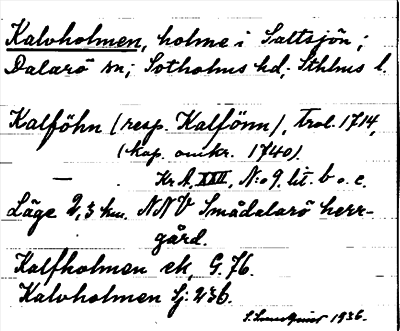 Kalvholmen, holme i Saltsjön;
Dalarö sn; Sotholms hd; Sthlms l.
Kalföhn (resp. Kalfönn), trol. 1714,
(kop. omkr. 1740).
— Kr A, XXII, N:o 9. lit. b o. c.
Läge 2,3 km. NNV Smådalarö herr-
gård.
Kalfholmen ek, G. 76.
Kalvholmen Sj: 236.
1936.